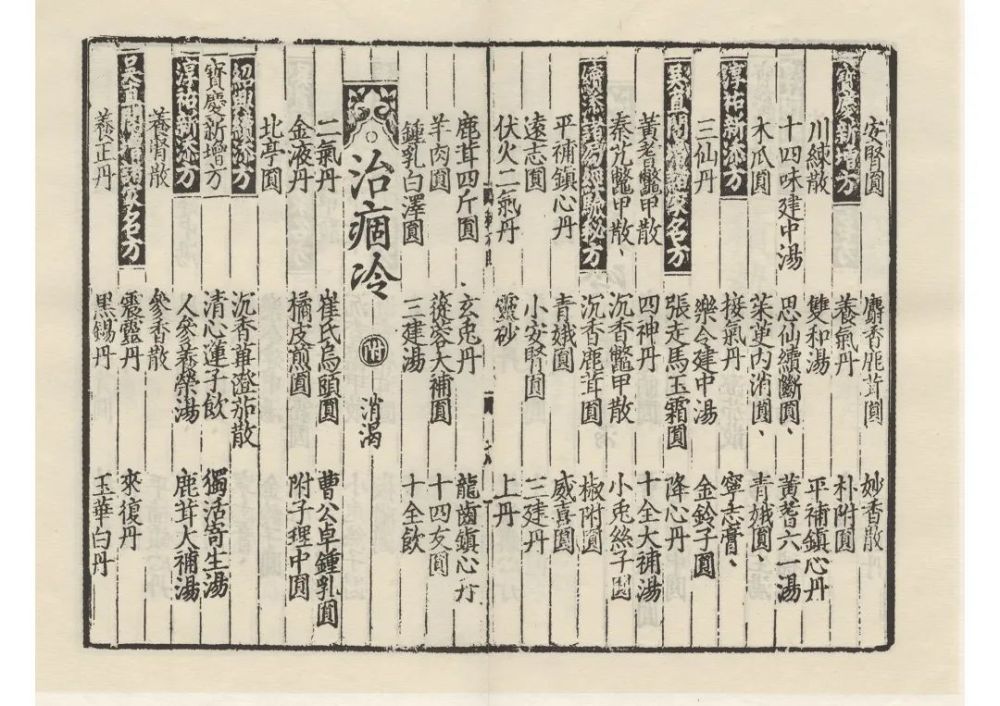 安腎圓 麝香鹿茸圓 妙香散
寶慶新增方 養氣丹 朴附圓
川練散 雙和湯 平補鎮心丹
十四味建中湯 思仙續斷圓、 黃蓍六一湯
木瓜圓 茱萸內消圓、 青娥圓、
淳祐新添方 接氣丹 寧志膏、
三仙丹 樂令建中湯 金鈴子圓
吳直閣增諸家名方 張走馬玉霜圓 降心丹
黃耆鱉甲散 四神丹 十全大補湯
秦艽鱉甲散、 沉香鱉甲散 小兎絲子圓
續添諸局經驗秘方 沉香鹿茸圓 椒附圓
平補鎮心丹 青娥圓 威喜圓
遠志圓 小安腎圓 三建丹
伏火二氣丹 靈砂 上丹
鹿茸四斤圓 玄兎丹 龍齒鎮心丹
羊肉圓 蓯蓉大補圓 十四友圓
鍾乳白澤圓 三建湯 十全飲
治痼冷 附 消渴
二氣丹 崔氏烏頭圓 曹公卓鍾乳圓
金液丹 橘皮煎圓 附子理中圓
北亭圓
紹興續添方 沉香蓽澄茄散
寶慶新增方 清心蓮子飲 獨活寄生湯
淳祐新添方 人參養榮湯 鹿茸大補湯
養腎散 參香散
吳直閣增諸家名方 震靈丹 來復丹
養正丹 黑錫丹 玉華白丹